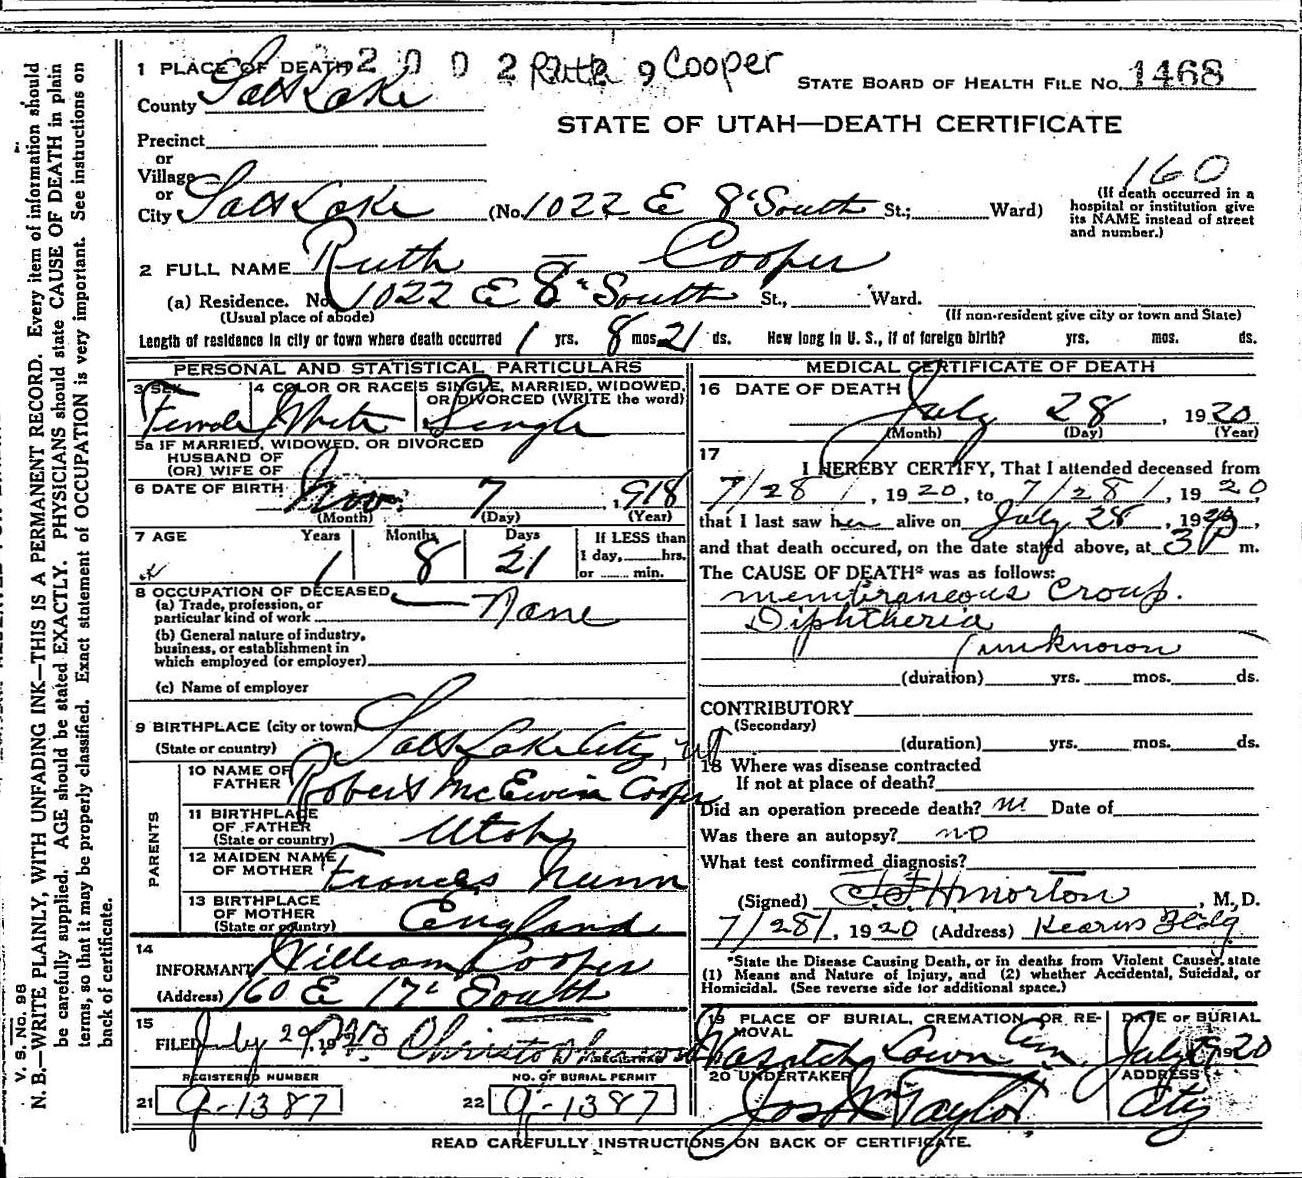 2002 Ruth 9 Cooper
1 PLACE OF DEATH
STATE BOARD OF HEALTH FILE No. 1468
County Salt Lake
STATE OF UTAH—DEATH CERTIFICATE
Precinct
or
Village
or
City Salt Lake (No. 1022 E 8" South St.; Ward)
160
(If death occurred in a
hospital or institution give
its NAME instead of street
and number.)
2 FULL NAME Ruth — Cooper
(a) Residence. No. 1022 E 8" South St., Ward.
(Usual place of abode)
(If non-resident give city or town and State)
Length of residence in city or town where death occurred 1 yrs. 8 mos. 21 ds. How long in U. S., if of foreign birth? yrs. mos. ds.
PERSONAL AND STATISTICAL PARTICULARS
3 SEX
Female
4 COLOR OR RACE
White
5 SINGLE, MARRIED, WIDOWED,
OR DIVORCED (WRITE the word)
Single
5a IF MARRIED, WIDOWED, OR DIVORCED
HUSBAND OF
(OR) WIFE OF
6 DATE OF BIRTH Nov. 7, 1918
(Month) (Day) (Year)
7 AGE Years Months Days
1 8 21
If LESS than
1 day, hrs.
or min.
8 OCCUPATION OF DECEASED
(a) Trade, profession, or
particular kind of work None
(b) General nature of industry,
business, or establishment in
which employed (or employer)
(c) Name of employer
9 BIRTHPLACE (city or town)
(State or country) Salt Lake City, Ut
PARENTS
10 NAME OF
FATHER Robert McEwin Cooper
11 BIRTHPLACE
OF FATHER
(State or country) Utah
12 MAIDEN NAME
OF MOTHER Frances Nunn
13 BIRTHPLACE
OF MOTHER
(State or country) England
14
INFORMANT William Cooper
(Address) 160 E 17" South
15
FILED July 29, 19
REGISTRAR
REGISTERED NUMBER
21 9-1387
NO. OF BURIAL PERMIT
22 9-1387
MEDICAL CERTIFICATE OF DEATH
16 DATE OF DEATH
July 28, 1920
(Month) (Day) (Year)
17
I HEREBY CERTIFY, That I attended deceased from
7/28/, 1920, to 7/28/, 1920,
that I last saw her alive on July 28, 1920,
and that death occured, on the date stated above, at 3 P m.
The CAUSE OF DEATH* was as follows:
membraneous Croup.
Diphtheria
(unknown
(duration) yrs. mos. ds.
CONTRIBUTORY
(Secondary)
(duration) yrs. mos. ds.
18 Where was disease contracted
If not at place of death?
Did an operation precede death? no Date of
Was there an autopsy? no
What test confirmed diagnosis?
(Signed) Morton, M. D.
7/28/, 1920 (Address) Kearns Bldg
*State the Disease Causing Death, or in deaths from Violent Causes, state
(1) Means and Nature of Injury, and (2) whether Accidental, Suicidal, or
Homicidal. (See reverse side for additional space.)
19 PLACE OF BURIAL, CREMATION, OR RE-
MOVAL
Wasatch Lawn Cem
DATE OF BURIAL
July 1920
20 UNDERTAKER
Jos Wm Taylor
ADDRESS
City
READ CAREFULLY INSTRUCTIONS ON BACK OF CERTIFICATE.
V. S. No. 98
N. B.—WRITE PLAINLY, WITH UNFADING INK—THIS IS A PERMANENT RECORD. Every item of information should
be carefully supplied. AGE should be stated EXACTLY. PHYSICIANS should state CAUSE OF DEATH in plain
terms, so that it may be properly classified. Exact statement of OCCUPATION is very important. See instructions on
back of certificate.